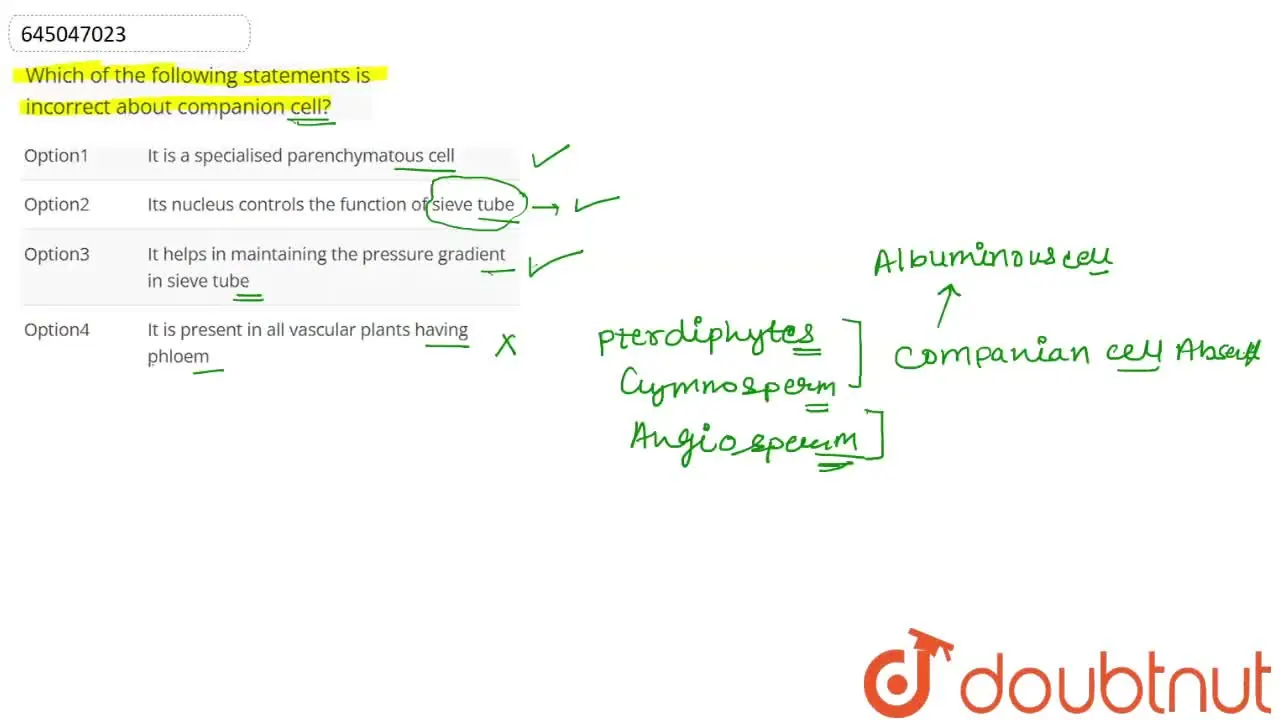 645047023
Which of the following statements is
incorrect about companion cell?
Option1 It is a specialised parenchymatous cell
Option2 Its nucleus controls the function of sieve tube
Option3 It helps in maintaining the pressure gradient
in sieve tube
Option4 It is present in all vascular plants having
phloem
Albuminous cell
Pterdiphytes
Companian cell Absent
Gymnosperm
Angiosperm
doubtnut